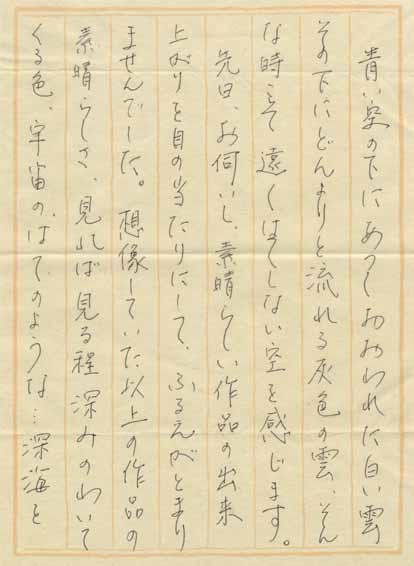 青い空の下にあつくおおわれた白い雲
その下にどんよりと流れる灰色の雲、そん
な時こそ遠くはてしない空を感じます。
先日、お伺いし、素晴らしい作品の出来
上がりを目の当たりにして、ふるえがとまり
ませんでした。想像していた以上の作品の
素晴らしさ、見れば見る程深みのわいて
くる色、宇宙の、はてのような…深海と